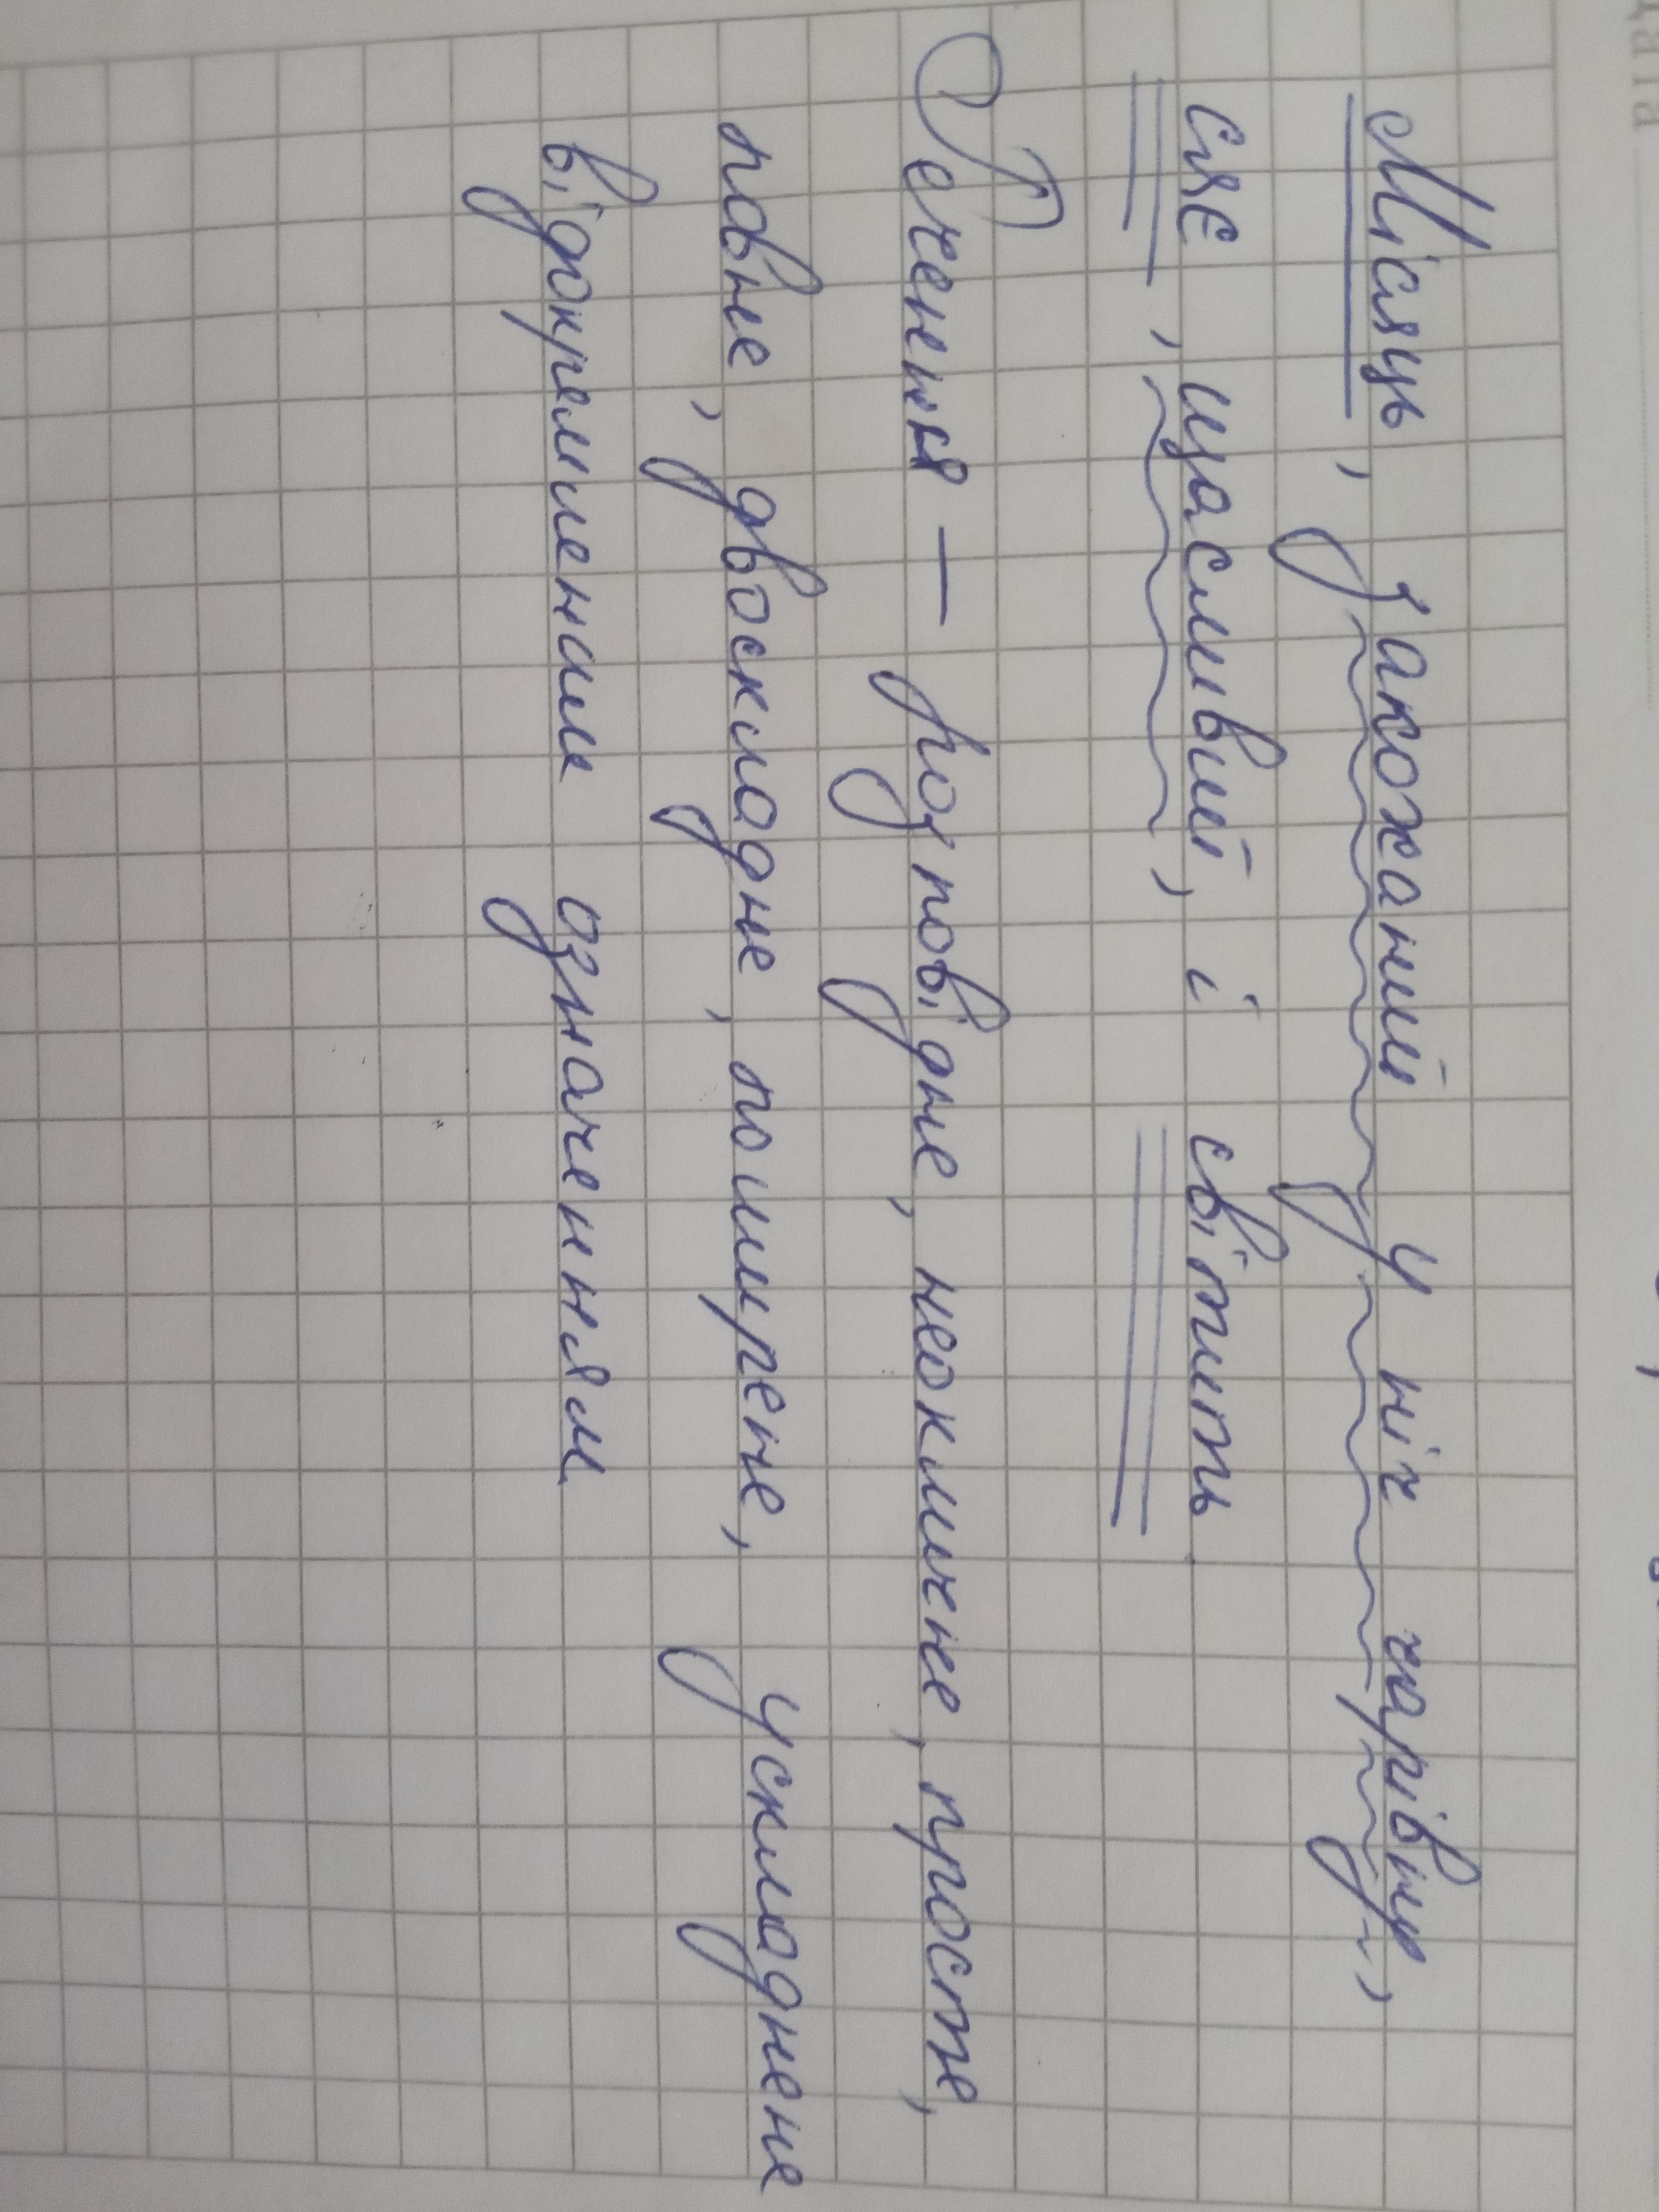 Місяць, закоханий у ніч чарівну,
сяє, щасливий, і світить
Речення — розповідне, неокличне, просте,
повне, двоскладне, поширене, ускладнене
відокремленим означенням